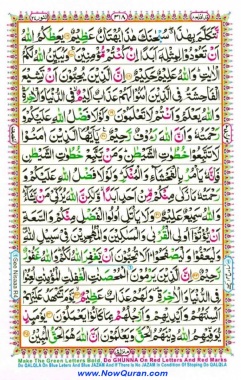 ٣١٨
نَّتَكَلَّمَ بِهٰذَا سُبْحٰنَكَ هٰذَا بُهْتَانٌ عَظِيْمٌ يَعِظُكُمُ اللّٰهُ
اَنْ تَعُوْدُوْا لِمِثْلِهٖۤ اَبَدًا اِنْ كُنْتُمْ مُّؤْمِنِيْنَ وَيُبَيِّنُ اللّٰهُ لَكُمُ
الْاٰيٰتِ وَاللّٰهُ عَلِيْمٌ حَكِيْمٌ اِنَّ الَّذِيْنَ يُحِبُّوْنَ اَنْ تَشِيْعَ
الْفَاحِشَةُ فِي الَّذِيْنَ اٰمَنُوْا لَهُمْ عَذَابٌ اَلِيْمٌ فِي الدُّنْيَا وَالْاٰخِرَةِ
وَاللّٰهُ يَعْلَمُ وَاَنْتُمْ لَا تَعْلَمُوْنَ وَلَوْلَا فَضْلُ اللّٰهِ عَلَيْكُمْ
وَرَحْمَتُهٗ وَاَنَّ اللّٰهَ رَءُوْفٌ رَّحِيْمٌ يٰۤاَيُّهَا الَّذِيْنَ اٰمَنُوْا
لَا تَتَّبِعُوْا خُطُوٰتِ الشَّيْطٰنِ وَمَنْ يَّتَّبِعْ خُطُوٰتِ الشَّيْطٰنِ
فَاِنَّهٗ يَاْمُرُ بِالْفَحْشَآءِ وَالْمُنْكَرِ وَلَوْلَا فَضْلُ اللّٰهِ عَلَيْكُمْ
وَرَحْمَتُهٗ مَا زَكٰى مِنْكُمْ مِّنْ اَحَدٍ اَبَدًا وَّلٰكِنَّ اللّٰهَ يُزَكِّيْ مَنْ يَّشَآءُ
وَاللّٰهُ سَمِيْعٌ عَلِيْمٌ وَلَا يَاْتَلِ اُولُوا الْفَضْلِ مِنْكُمْ وَالسَّعَةِ
اَنْ يُّؤْتُوْۤا اُولِي الْقُرْبٰى وَالْمَسٰكِيْنَ وَالْمُهٰجِرِيْنَ فِيْ سَبِيْلِ اللّٰهِ
وَلْيَعْفُوْا وَلْيَصْفَحُوْا اَلَا تُحِبُّوْنَ اَنْ يَّغْفِرَ اللّٰهُ لَكُمْ وَاللّٰهُ غَفُوْرٌ
رَّحِيْمٌ اِنَّ الَّذِيْنَ يَرْمُوْنَ الْمُحْصَنٰتِ الْغٰفِلٰتِ الْمُؤْمِنٰتِ لُعِنُوْا
فِي الدُّنْيَا وَالْاٰخِرَةِ وَلَهُمْ عَذَابٌ عَظِيْمٌ يَّوْمَ تَشْهَدُ عَلَيْهِمْ
اَلْسِنَتُهُمْ وَاَيْدِيْهِمْ وَاَرْجُلُهُمْ بِمَا كَانُوْا يَعْمَلُوْنَ يَوْمَئِذٍ
يُّوَفِّيْهِمُ اللّٰهُ دِيْنَهُمُ الْحَقَّ وَيَعْلَمُوْنَ اَنَّ اللّٰهَ هُوَ الْحَقُّ الْمُبِيْنُ
Make The Green Letters Bold. Do GHUNNA On Red Letters And Red Marks
Do QALQLA On Blue Leters And Blue JAZAM And If There Is No JAZAM In Condition Of Stoping Do QALQLA
www.NowQuran.com